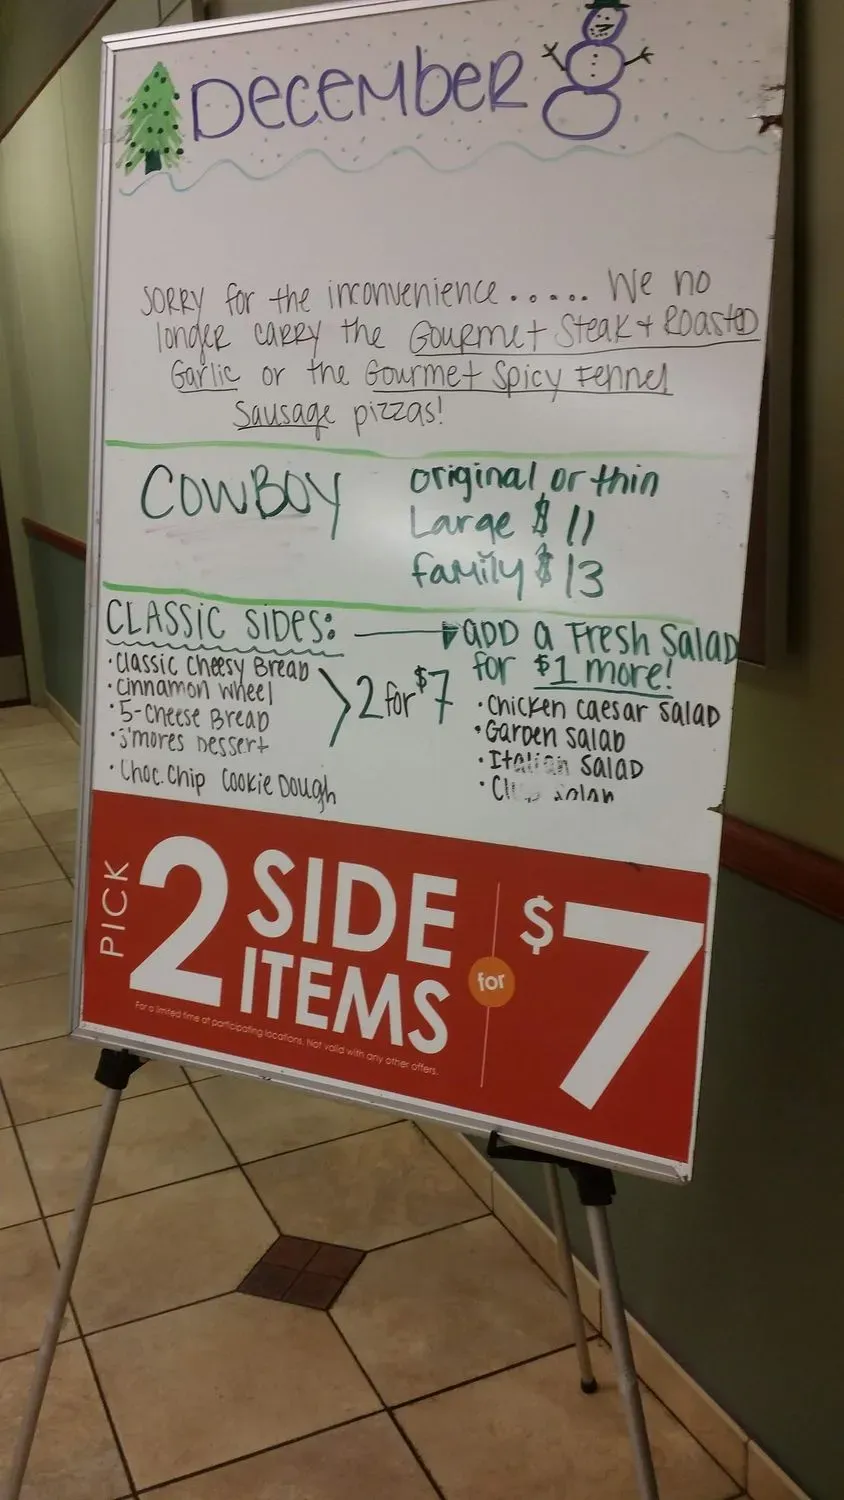 December
SORRY for the inconvenience..... We no
longer carry the Gourmet Steak + Roasted
Garlic or the Gourmet Spicy Fennel
Sausage pizzas!
COWBOY
original or thin
Large $11
family $13
CLASSIC SIDES:
• Classic Cheesy Bread
• Cinnamon Wheel
• 5-Cheese Bread
• S'mores Dessert
• Choc. Chip Cookie Dough
2 for $7
ADD a Fresh Salad
for $1 more!
• Chicken Caesar Salad
• Garden Salad
• Italian Salad
PICK
2 SIDE
ITEMS
for
$7
For a limited time at participating locations. Not valid with any other offers.